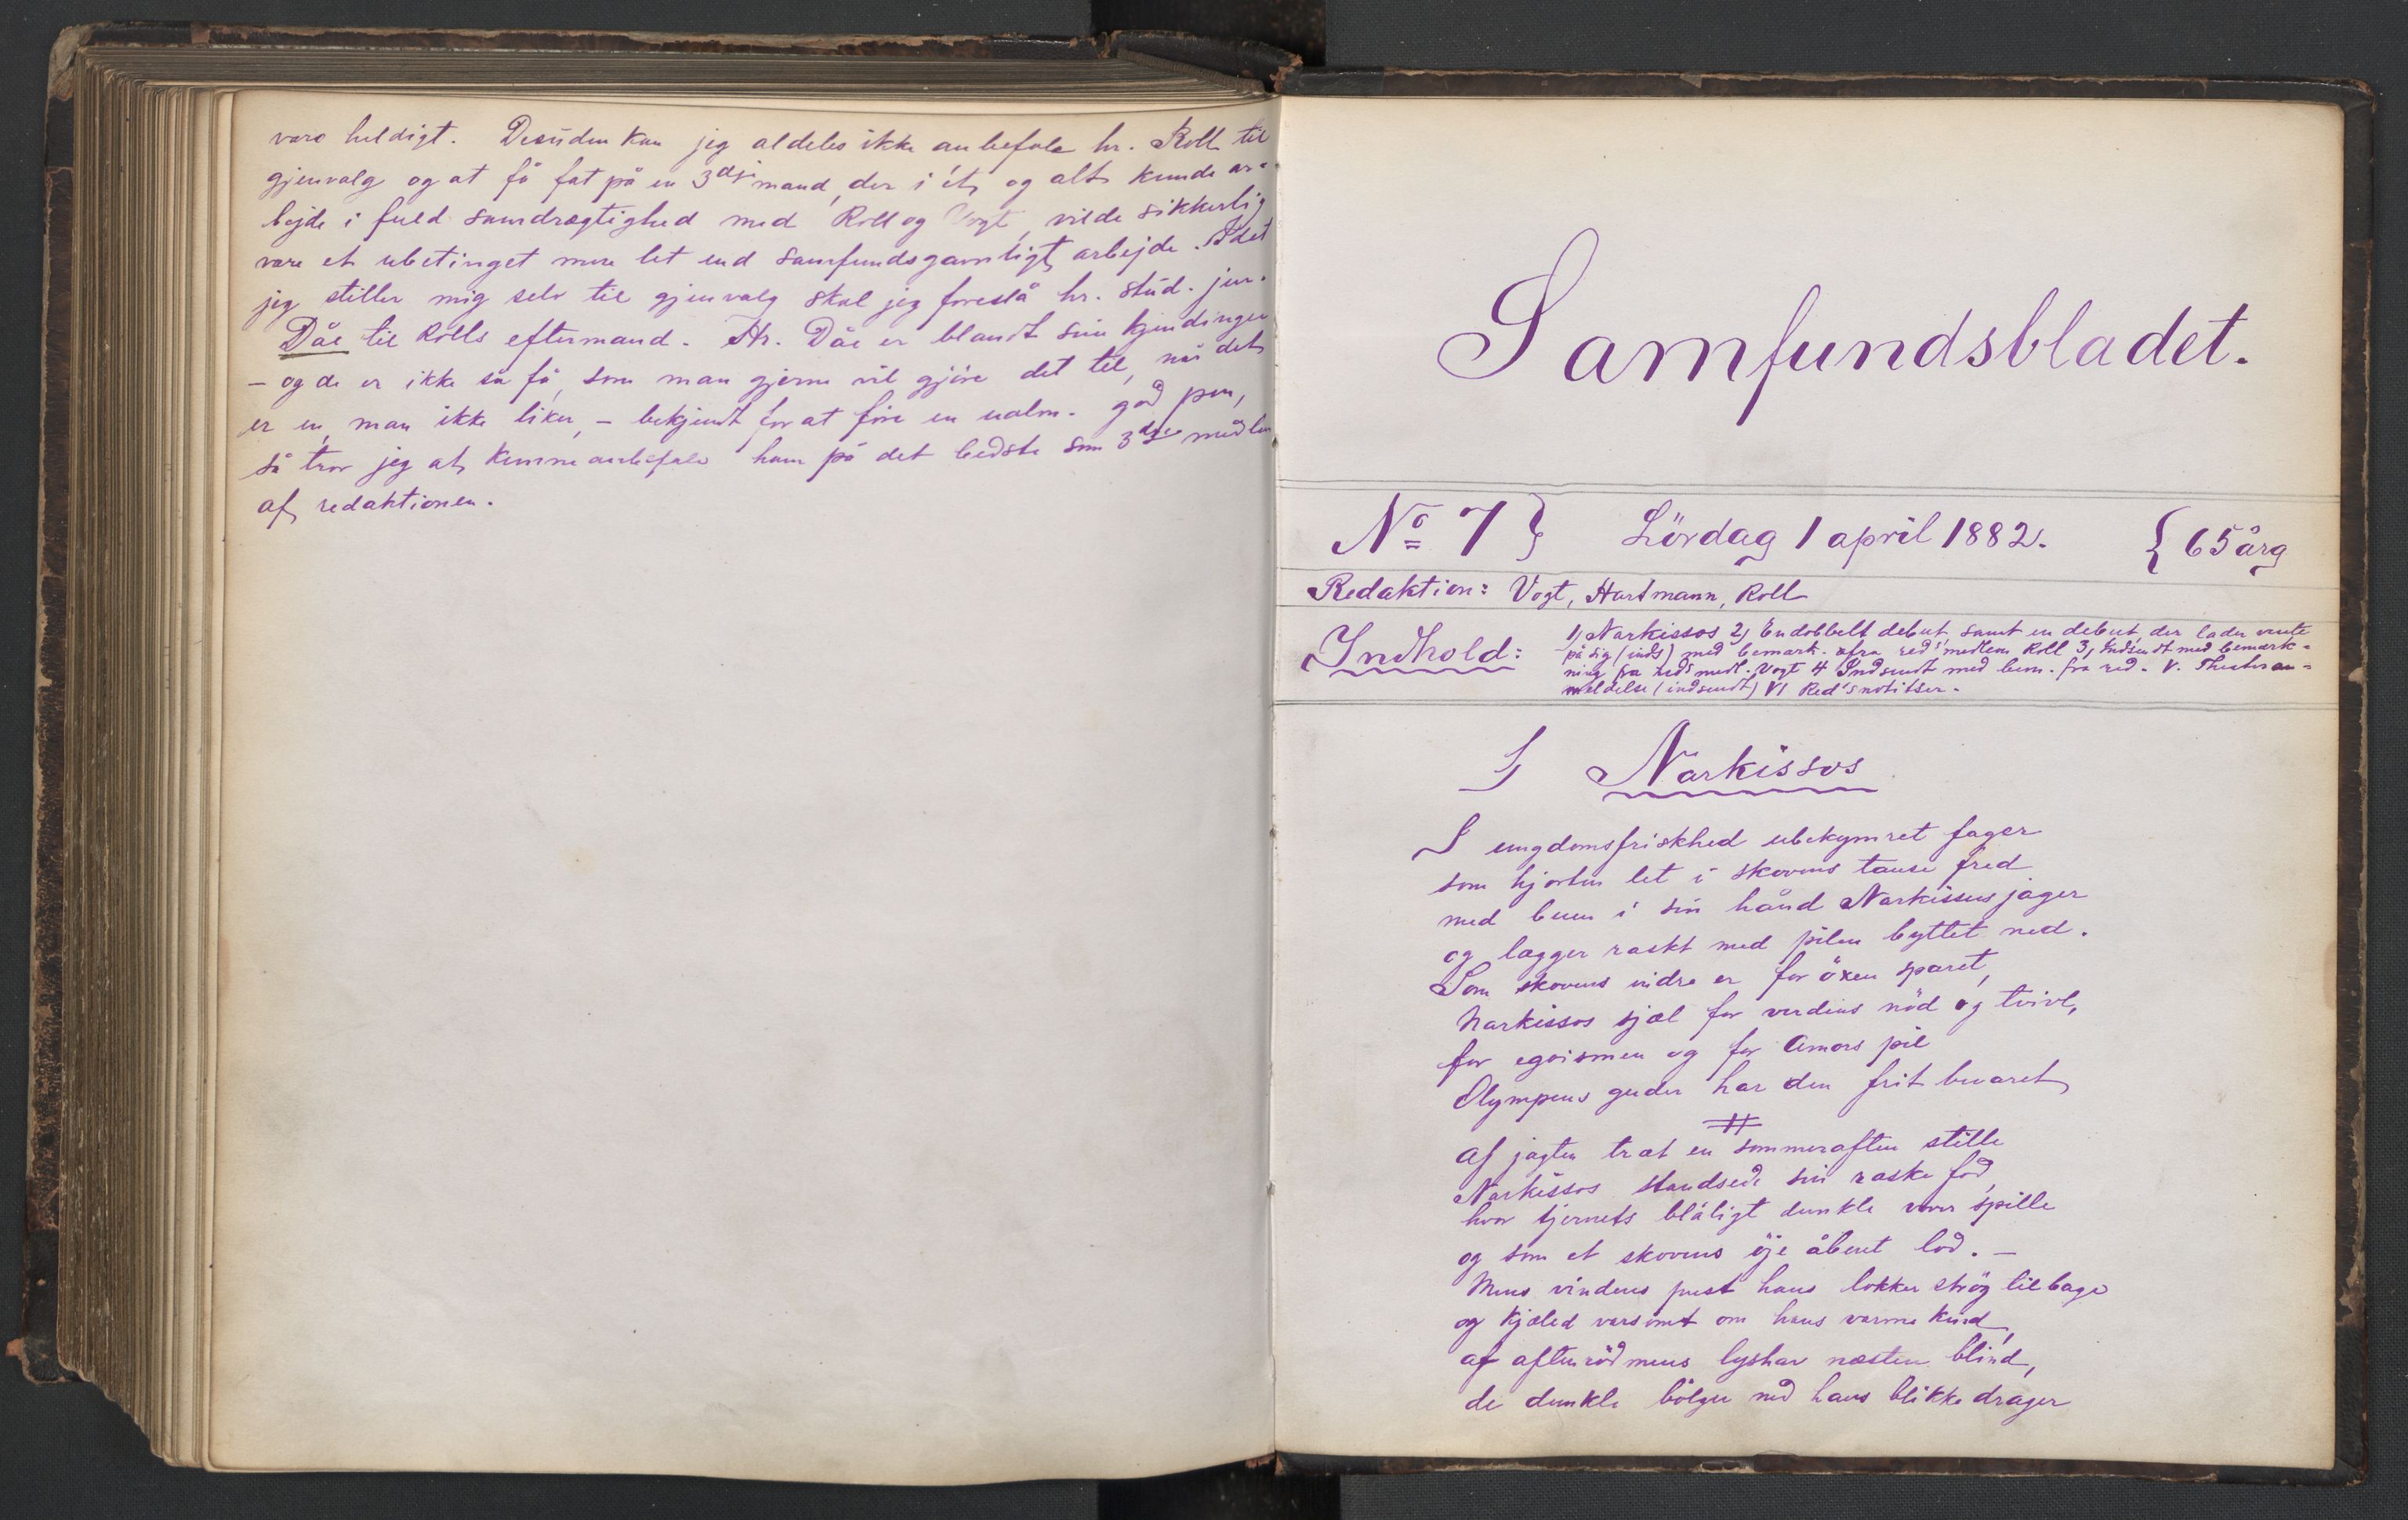 være heldigt. Desuden kan jeg aldeles ikke anbefale hr. Roll til
gjenvalg og at få fat på en 3dje mand, der i ét og alt kunde ar-
bejde i fuld samdrægtighed med Roll og Vogt, vilde sikkerlig
være et ubetinget mere let end samfundsgavnligt arbejde. Idet
jeg stiller mig selv til gjenvalg skal jeg foreslå hr. stud. jur.
Dåe til Rolls eftermand. Hr. Dåe er blandt sine kjendinger
– og de er ikke så få, som man gjerne vil gjöre det til, når det
er en, man ikke liker, – bekjendt for at före en ualm. god pen,
så tror jeg at kunne anbefale ham på det bedste som 3dje medlem
af redaktionen.
Samfundsbladet.
No 7} Lördag 1 april 1882. {65 årg
Redaktion: Vogt, Hartmann, Roll
Indhold: 1) Narkissos 2) En dobbelt debut, samt en debut, der lader vente
på sig (inds) med bemærk. afra red's medlem Roll 3, Indsendt med bemærk-
ning fra red's medl. Vogt 4 Indsendt med bem. fra red. V. Theateran-
meldelse (indsendt) VI Red's notitser.
I) Narkissos
I ungdomsfriskhed ubekymret fager
som hjorten let i skovens tause fred
med buen i sin hånd Narkissus jager
og lægger raskt med pilen byttet ned.
Som skovens indre er for öxen sparet,
Narkissos sjæl for verdens nöd og tvivl,
for egoismen og for Amors pil
Olympens guder har den frit bevaret
#
Af jagten træt en sommeraften stille
Narkissos standsede sin raske fod,
hvor tjernets blåligt dunkle vover spille
og som et skovens öje åbent lod. –
Mens vindens pust hans lokker strög tilbage
og kjæled varsomt om hans varme kind,
af aftenrödmens lyshav næsten blind,
de dunkle bölger ned hans blikke drager